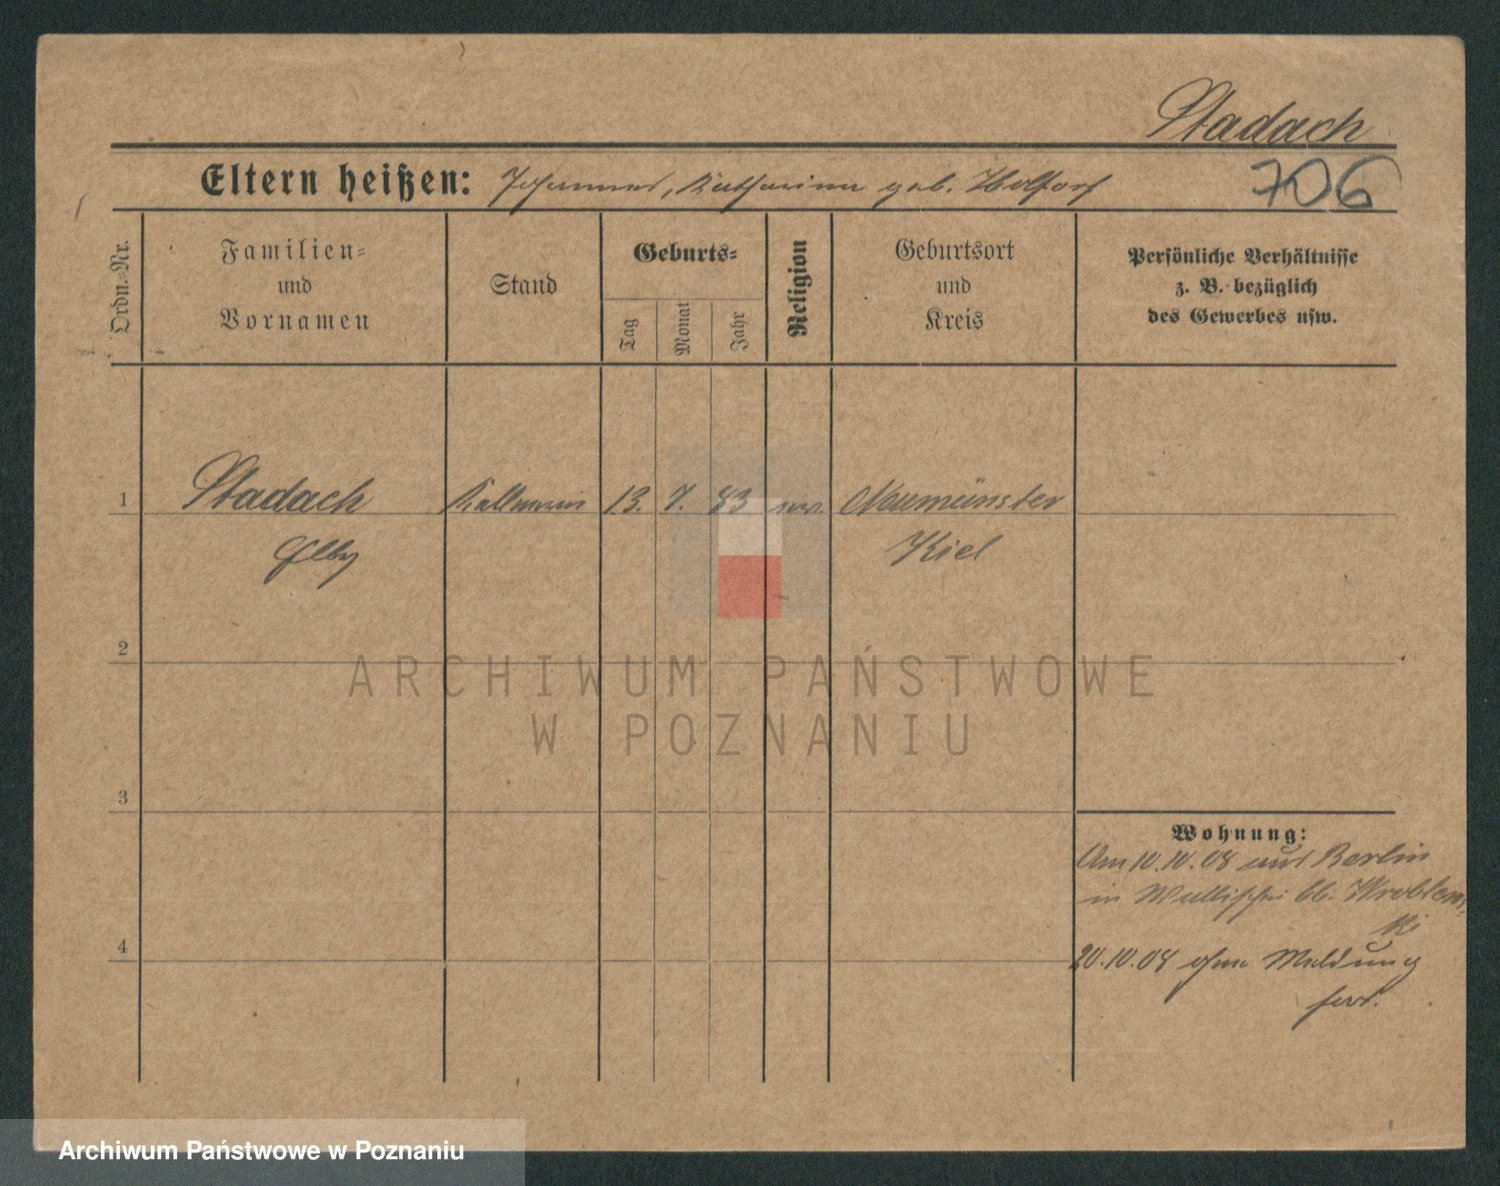 Stadach
706
Eltern heißen: Johannes, Katharina geb. Holtorf
Ordn.-Nr.
Familien-
und
Vornamen
Stand
Geburts-
Tag
Monat
Jahr
Religion
Geburtsort
und
Kreis
Persönliche Verhältnisse
z. B. bezüglich
des Gewerbes usw.
1 Stadach Kellnerin 13. 7. 83 Neumünster
Kiel
2
3
4
Wohnung:
Am 10.10.08 aus Berlin
in Wallischei 66. Wroblews-
ki
20.10.08 ohne Meldung
fort.
ARCHIWUM PAŃSTWOWE
W POZNANIU
Archiwum Państwowe w Poznaniu